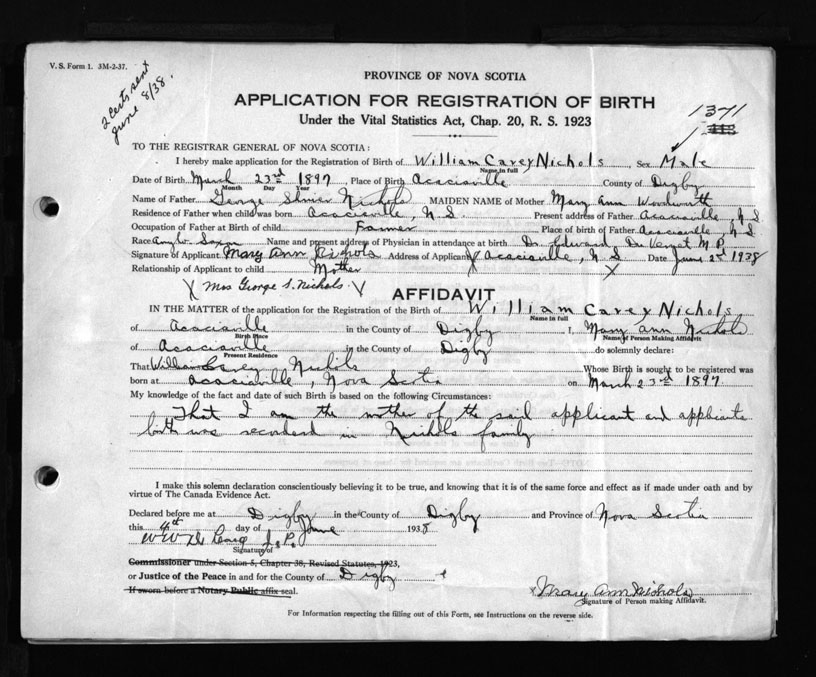 V. S. Form 1. 3M-2-37.
2 Certs sent
June 8/38.
PROVINCE OF NOVA SCOTIA
APPLICATION FOR REGISTRATION OF BIRTH
1371
Under the Vital Statistics Act, Chap. 20, R. S. 1923
TO THE REGISTRAR GENERAL OF NOVA SCOTIA:
I hereby make application for the Registration of Birth of William Carey Nichols Sex Male
Name in full
Date of Birth March 23rd 1897 Place of Birth Acaciaville County of Digby
Month Day Year
Name of Father George Nichols MAIDEN NAME of Mother Mary Ann Woodworth
Residence of Father when child was born Acaciaville, N.S. Present address of Father Acaciaville, N S
Occupation of Father at Birth of child Farmer Place of birth of Father Acaciaville, N S
Race Anglo Saxon Name and present address of Physician in attendance at birth Dr. Edward
Signature of Applicant Mary Ann Nichols Address of Applicant Acaciaville, N S Date June 2nd 1938
Relationship of Applicant to child Mother
X Mrs George S. Nichols. X X
AFFIDAVIT
IN THE MATTER of the application for the Registration of the Birth of William Carey Nichols
Name in full
of Acaciaville in the County of Digby I, Mary Ann Nichols
Birth Place Name of Person Making Affidavit
of Acaciaville in the County of Digby do solemnly declare:
Present Residence
That William Carey Nichols Whose Birth is sought to be registered was
born at Acaciaville, Nova Scotia on March 23rd 1897
My knowledge of the fact and date of such Birth is based on the following Circumstances:
That I am the mother of the said applicant and applicants
birth was recorded in Nichols family
I make this solemn declaration conscientiously believing it to be true, and knowing that it is of the same force and effect as if made under oath and by
virtue of The Canada Evidence Act.
Declared before me at Digby in the County of Digby and Province of Nova Scotia
this 4th day of June 1938
J.P.
Signature of
Commissioner under Section 5, Chapter 38, Revised Statutes, 1923,
or Justice of the Peace in and for the County of Digby
If sworn before a Notary Public affix seal.
x Mary Ann Nichols
Signature of Person making Affidavit.
For Information respecting the filling out of this Form, see Instructions on the reverse side.